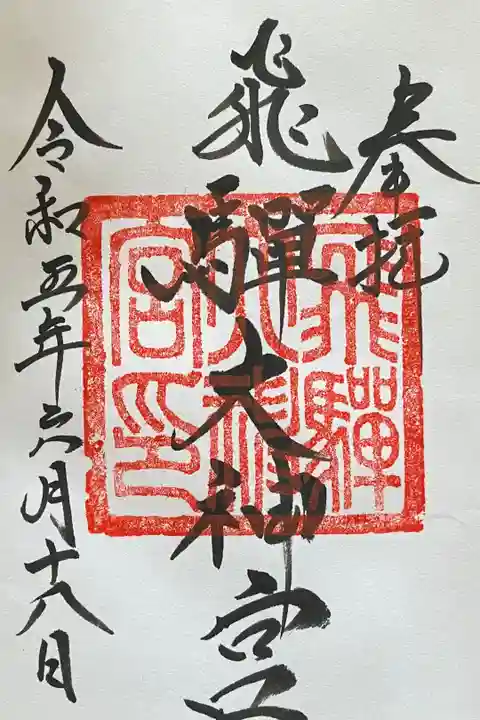 奉拝
飛騨大神宮
令和五年六月十八日
飛驒
大神
宮印